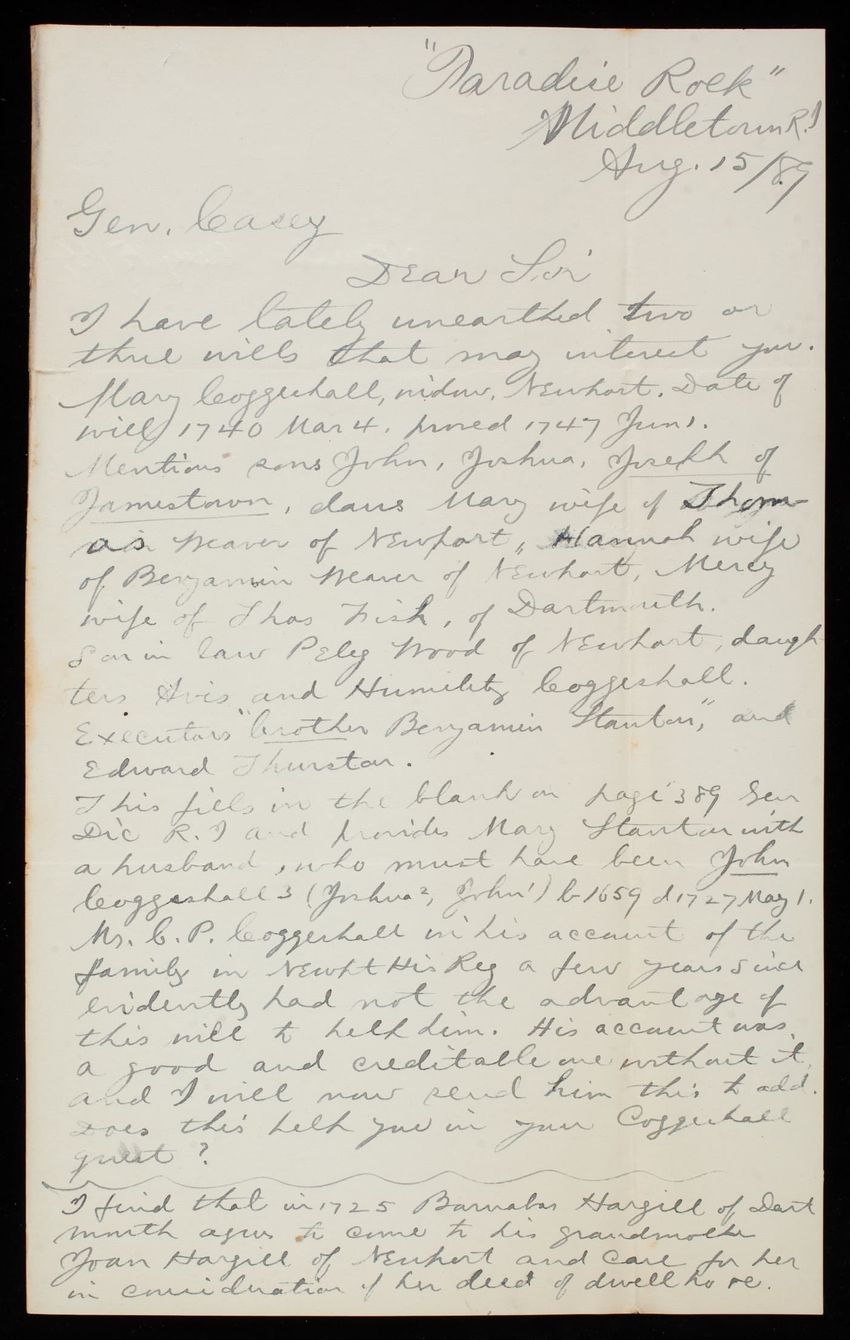 "Paradise Rock"
Middletown R.I
Aug. 15/89
Gen. Casey
Dear Sir
I have lately unearthed two or
three wills that may interest you.
Mary Coggeshall, widow, Newport. Date of
will 1740 Mar 4. proved 1747 Jun 1.
Mentions sons John, Joshua, Joseph of
Jamestown, daus Mary wife of Thom-
as Weaver of Newport, Hannah wife
of Benjamin Weaver of Newport, Mercy
wife of Thos Fish, of Dartmouth.
Son in law Peleg Wood of Newport, daugh-
ters Avis and Humility Coggeshall.
Executors "brother Benjamin Stanton", and
Edward Thurston.
This fills in the blank on page 389 Gen
Dic R.I and provides Mary Stanton with
a husband, who must have been John
Coggeshall 3 (Joshua 2, John 1) b 1659 d 1727 May 1.
Mr. C. P. Coggeshall in his account of the
family in Newpt His Reg a few years since
evidently had not the advantage of
this will to help him. His account was
a good and creditable one without it,
and I will now send him this to add.
Does this help you in your Coggeshall
quest?
I find that in 1725 Barnabas Hargill of Dart
mouth agrees to come to his grandmother
Joan Hargill of Newport and care for her
in consideration of her deed of dwell ho se.